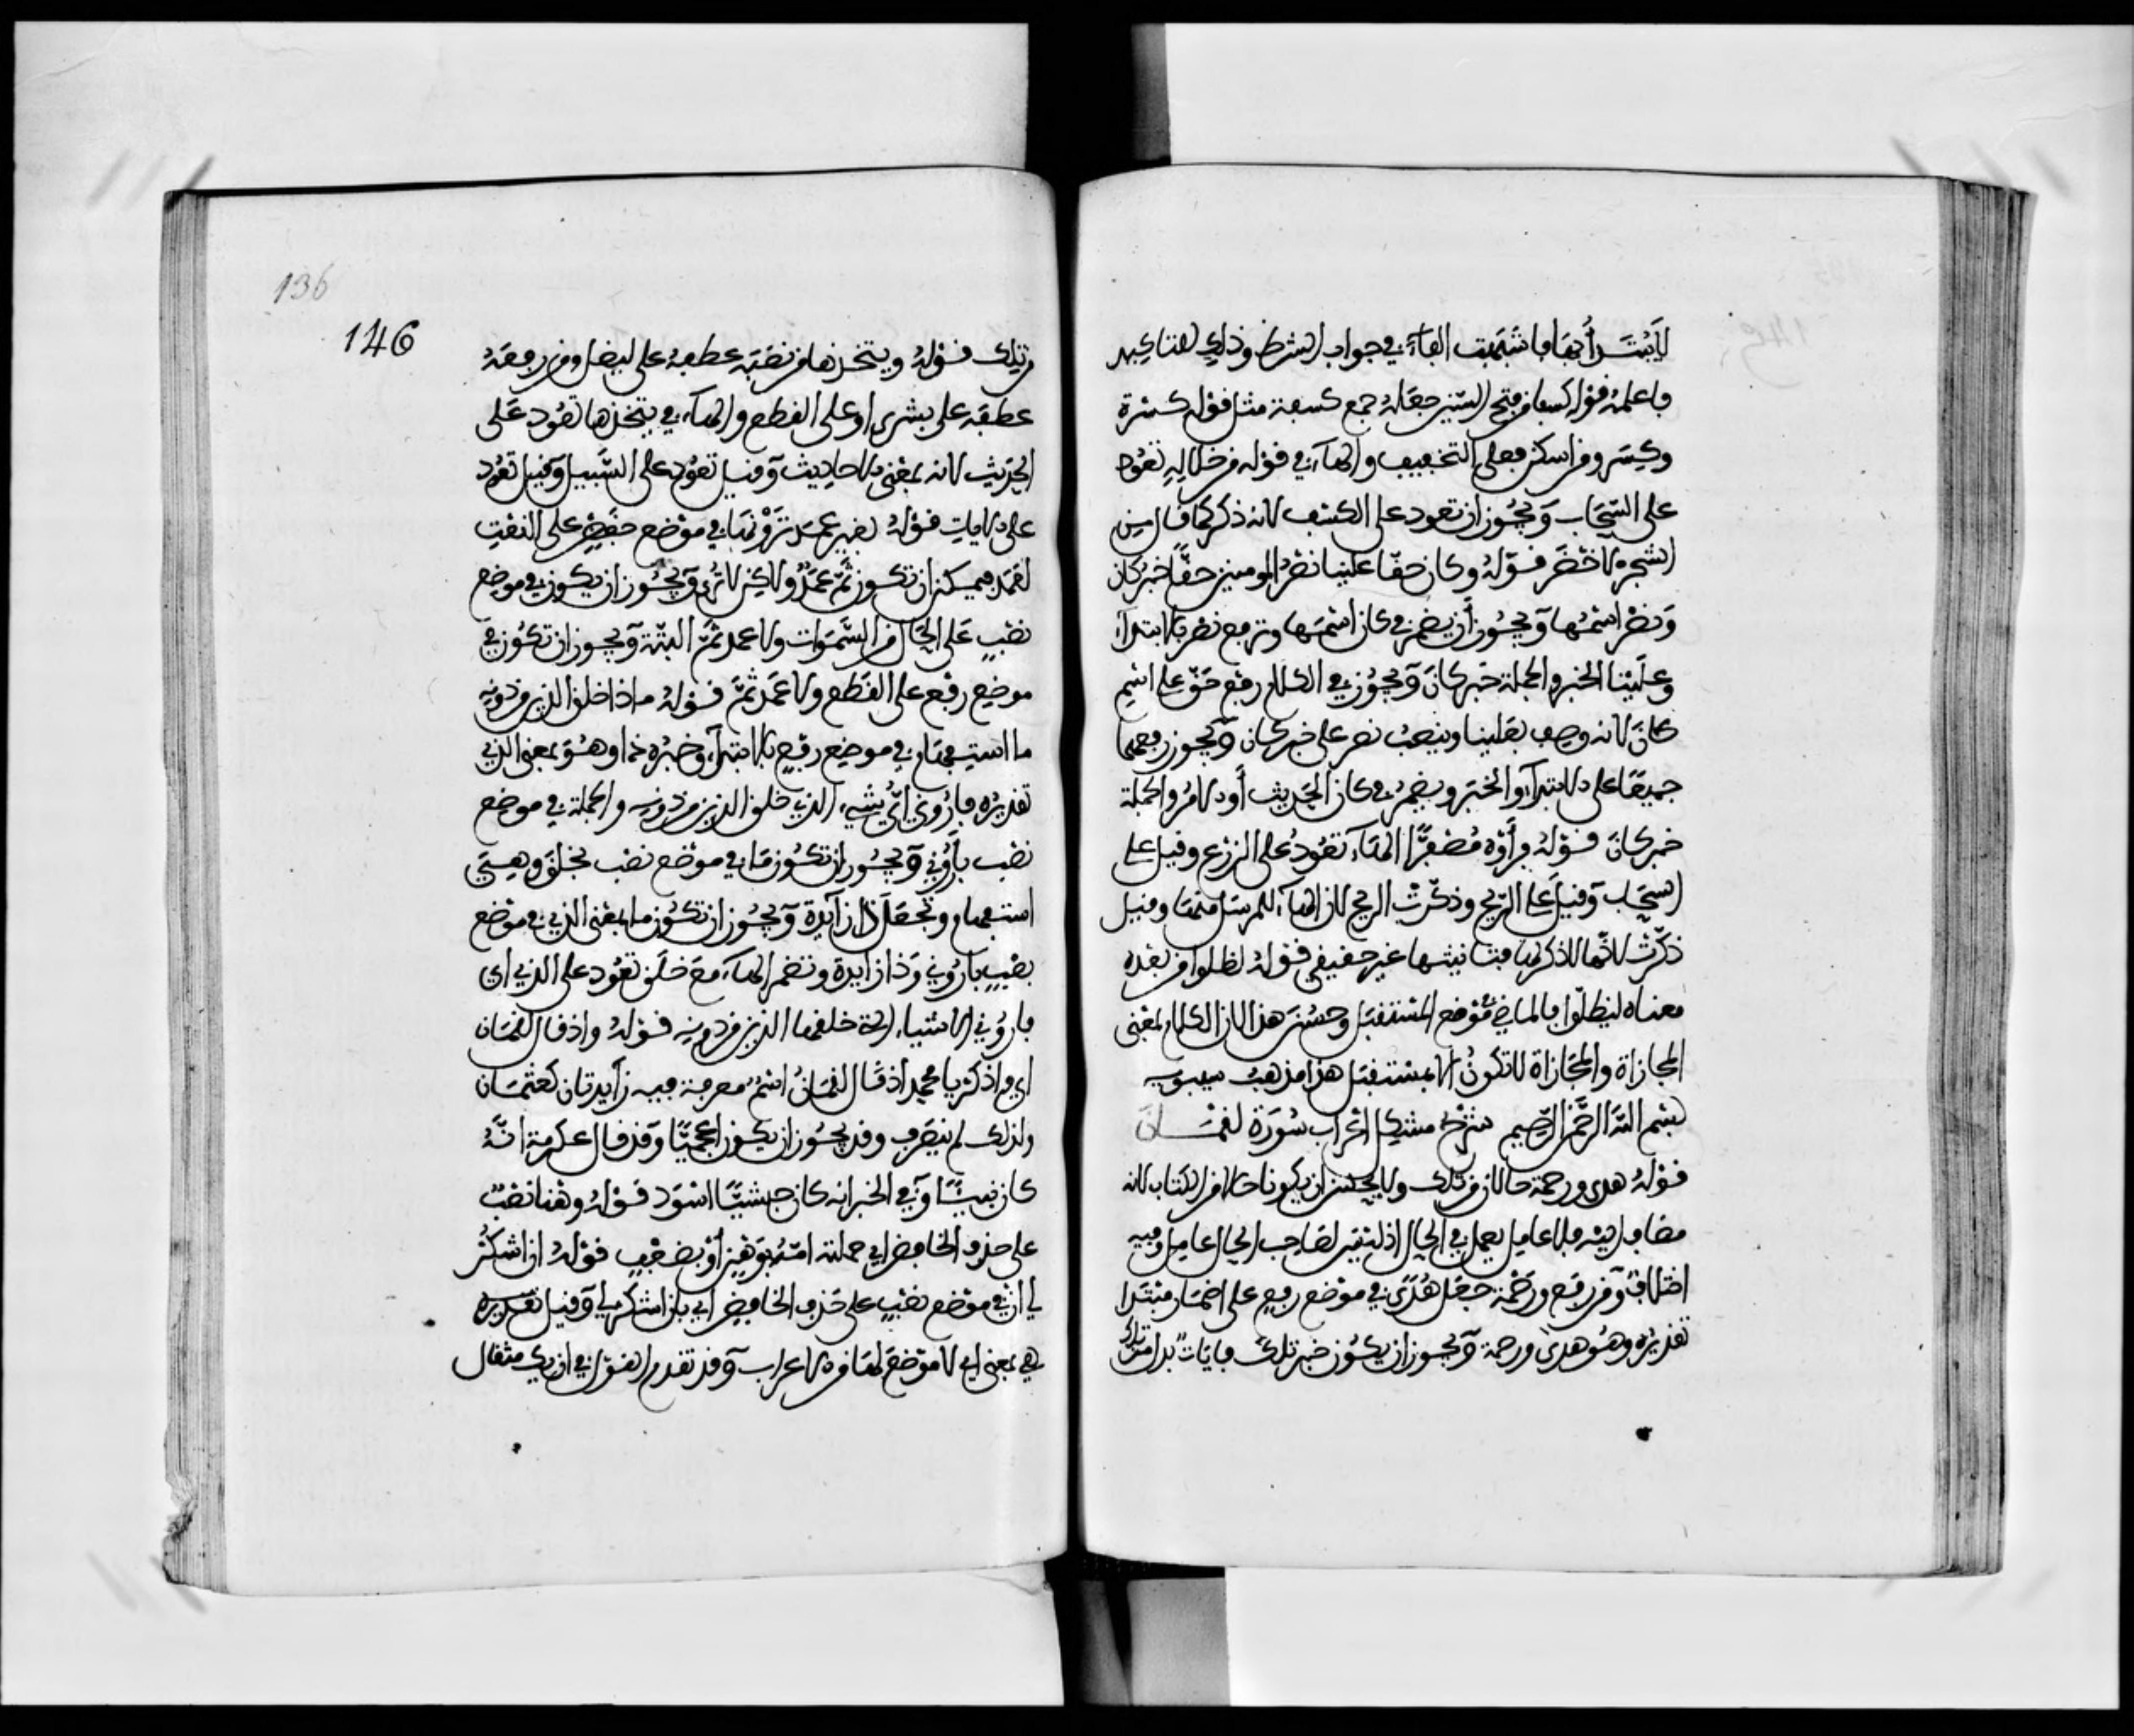 لا يبتدأ بها فأشبهت الفاء في جواب الشرط وذلك للتاكيد
فاعلمه قوله كسفا من فتح السين جعله جمع كسفة مثل قولك كسرة
وكسر ومن اسكن فعلى التخفيف والهاء في قوله من خلاله تعود
على السحاب ويجوز ان تعود على الكسف لانه ذكر كما قال من
الشجر الاخضر قوله وكان حقا علينا نصر المومنين حقا خبر كان
ونصر اسمها ويجوز أن يضمر في كان اسمها وترفع نصر بالابتداء
وعلينا الخبر والجملة خبر كان ويجوز في الكلام رفع حق على اسم
كان لانه وصف بعلينا وينصب نصر على خبر كان ويجوز رفعهما
جميعا على الابتداء والخبر ويضمر في كان الحديث أو الامر والجملة
خبر كان قوله فرأوه مصفرا الهاء تعود على الزرع وقيل على
السحاب وقيل على الريح وذكرت الريح لان الهاء للمرسل منها وقيل
ذكرت لانها لا ذكر لها فتانيثها غير حقيقي قوله لظلوا من بعده
معناه ليظلوا فالماضي موضع المستقبل وحسن هذا لان الكلام بمعنى
المجازاة والمجازاة لا تكون الا بمستقبل هذا مذهب سيبويه
بسم الله الرحمن الرحيم شرح مشكل اعراب سورة لقمــان
قوله هدى ورحمة حالان من تلك ولا يحسن ان يكونا حالا من الكتاب لانه
مضاف اليه فلا عامل يعمل في الحال اذ ليس لصاحب الحال عامل وفيه
اختلاف ومن رفع ورحمة جعل هدى في موضع رفع على اضمار مبتدا
تقديره وهو هدى ورحمة ويجوز ان يكون خبر تلك وايات بدل من تلك
146
136
من تلك قوله ويتخذها من نصبه عطفه على ليضل ومن رفعه
عطفه على يشتري او على القطع والهاء في يتخذها تعود على
الحديث لانه بمعنى الاحاديث وقيل تعود على السبيل وقيل تعود
على الايات قوله بغير عمد ترونها في موضع خفض على النعت
لعمد فيمكن ان تكون ثم عمد ولاكن لا ترى ويجوز ان يكون في موضع
نصب على الحال من السموات ولا عمد ثم البتة ويجوز ان تكون في
موضع رفع على القطع ولا عمد ثم قوله ماذا خلق الذين من دونه
ما استفهام في موضع رفع بالابتداء وخبره ذا وهو بمعنى الذي
تقديره فاروني اي شيء الذي خلق الذين من دونه والجملة في موضع
نصب باروني ويجوز ان تكون ما في موضع نصب بخلق وهي
استفهام وتجعل ذا زايدة ويجوز ان تكون ما بمعنى الذي في موضع
نصب باروني وذا زايدة وتضمر الهاء مع خلق تعود على الذي اي
فاروني الاشياء التي خلقها الذين من دونه قوله واذ قال لقمان
اي واذكر يا محمد اذ قال لقمان اسم معرفة فيه زايدتان كعثمان
ولذلك لم ينصرف وقد يجوز ان يكون اعجميا وقد قال عكرمة انه
كان نبيا وفي الخبر انه كان حبشيا اسود قوله وهنا نصب
على حذف الخافض اي حملته امه بوهن أو بضعف قوله ان اشكر
لي ان في موضع نصب على حذف الخافض اي بان اشكر لي وقيل تقديره
هي بمعنى اي لا موضع لها من الاعراب وقد تقدم القول في ان يك مثقال